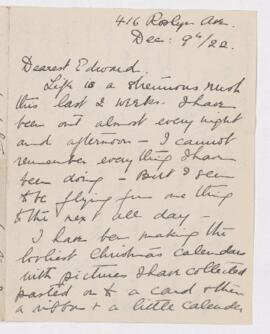 416 Roslyn Ave.
Dec: 9th/22.
Dearest Edward.
Life is a strenuous rush
this last 2 weeks. I have
been out almost every night
and afternoon – I cannot
remember everything I have
been doing – But I seem
to be flying from one thing
to the next all day –
I have been making the
loveliest Christmas calendars
with pictures I have collected
pasted on to a card & then
a ribbon & a little calender